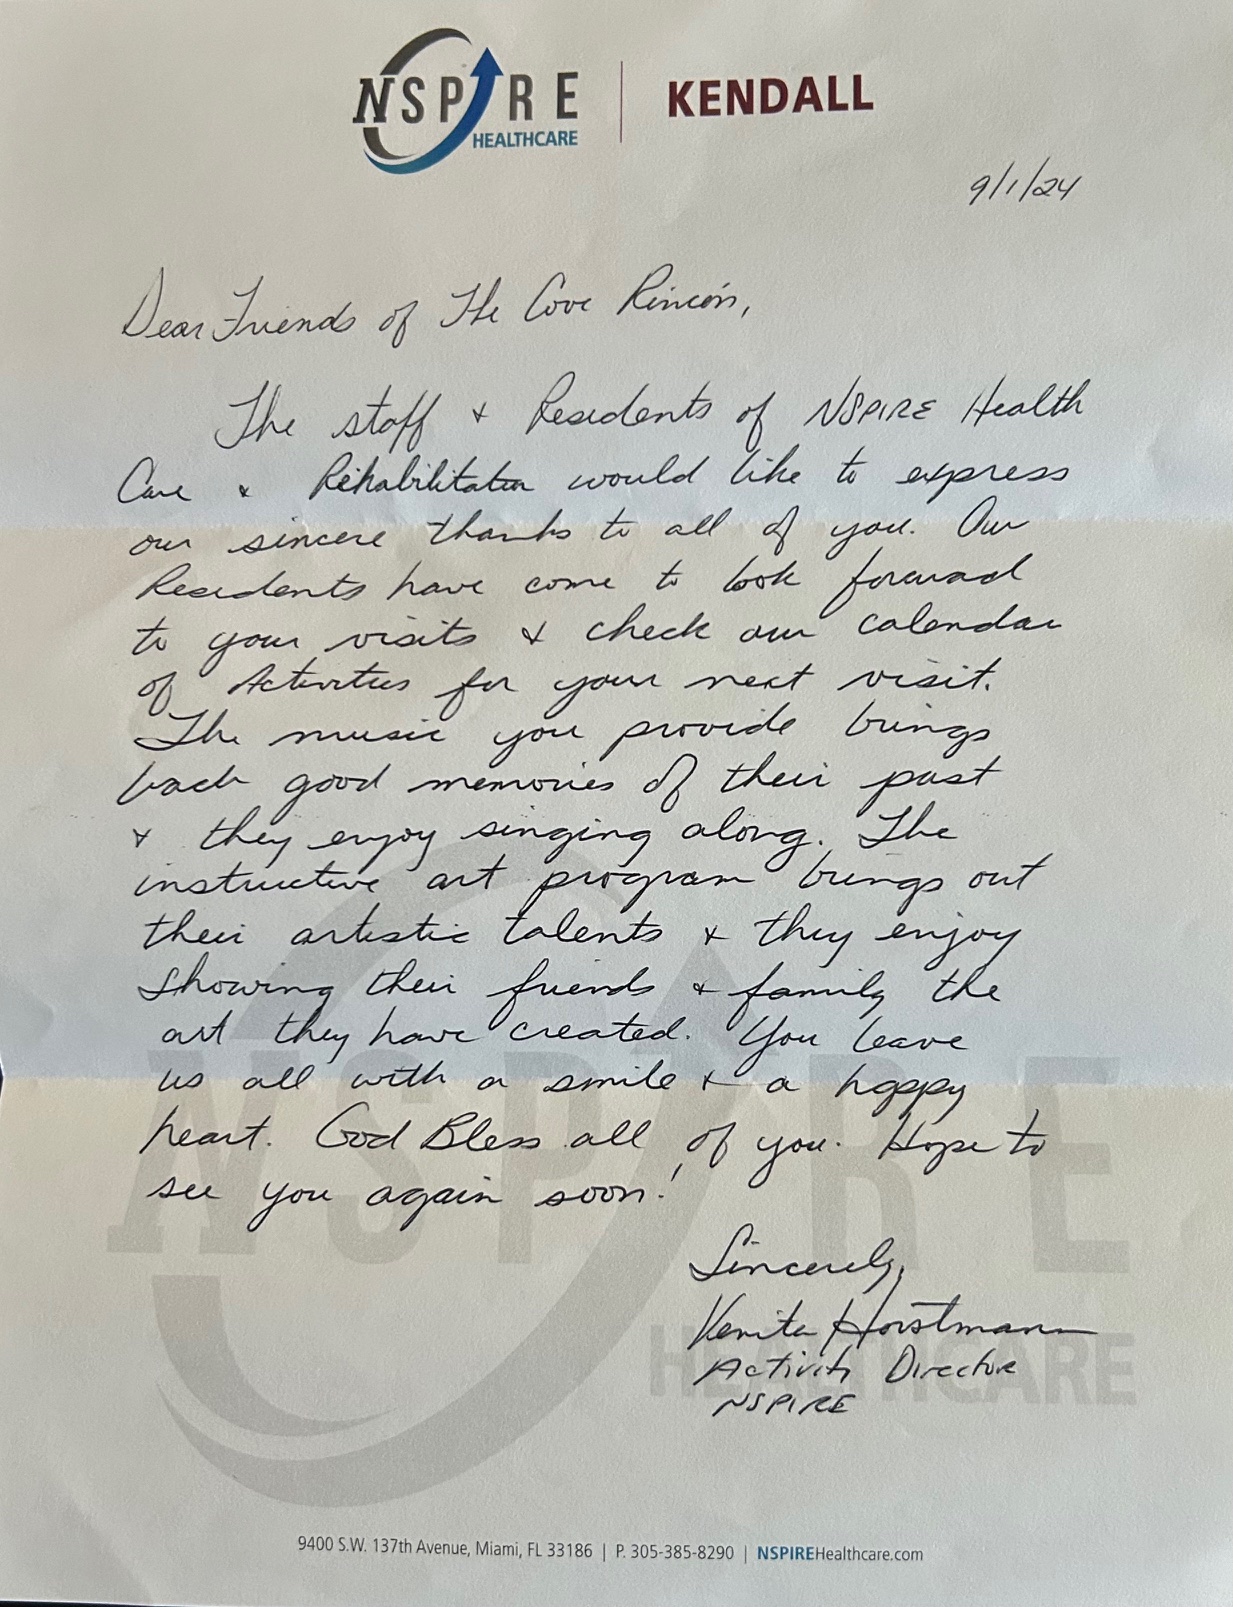 NSPIRE HEALTHCARE | KENDALL
9/1/24
Dear Friends of The Cove Rincón,
The staff & Residents of NSPIRE Health
Care & Rehabilitation would like to express
our sincere thanks to all of you. Our
Residents have come to look forward
to your visits & check our calendar
of Activities for your next visit.
The music you provide brings
back good memories of their past
& they enjoy singing along. The
instructive art program brings out
their artistic talents & they enjoy
showing their friends & family the
art they have created. You leave
us all with a smile & a happy
heart. God Bless all of you. Hope to
see you again soon!
Sincerely,
Venita Horstmann
Activity Director
NSPIRE
NSPIRE
HEALTHCARE
9400 S.W. 137th Avenue, Miami, FL 33186 | P. 305-385-8290 | NSPIREHealthcare.com